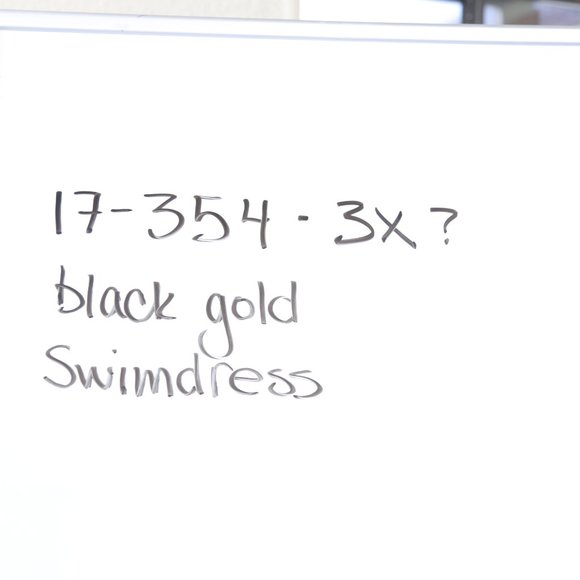 17-354 - 3x ?
black gold
Swimdress